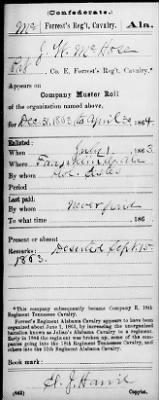 (Confederate.)
Mc | Forrest's Reg't, Cavalry. | Ala.
J. W. McHose
Pvt, Co. E, Forrest's Reg't, Cavalry.*
Appears on
Company Muster Roll
of the organization named above,
for Dec 31, 1863, to April 30, 1864
Enlisted:
When July 1, 1863
Where
By whom
Period
Last paid:
By whom Never paid
To what time 186
Present or absent
Remarks: Deserted Sept. 15
1863.
*This company subsequently became Company E, 18th
Tennessee Cavalry.
Forrest's Regiment Alabama Cavalry appears to have been
organized about June 1, 1863, by increasing the unorganized
battalion known as Julian's Alabama Cavalry to a regiment.
Early in 1864 the regiment was broken up, some of the com-
panies going into the 18th Regiment Tennessee Cavalry, and
others into the Regiment Alabama Cavalry.
Book mark:
(642)
Copyist.